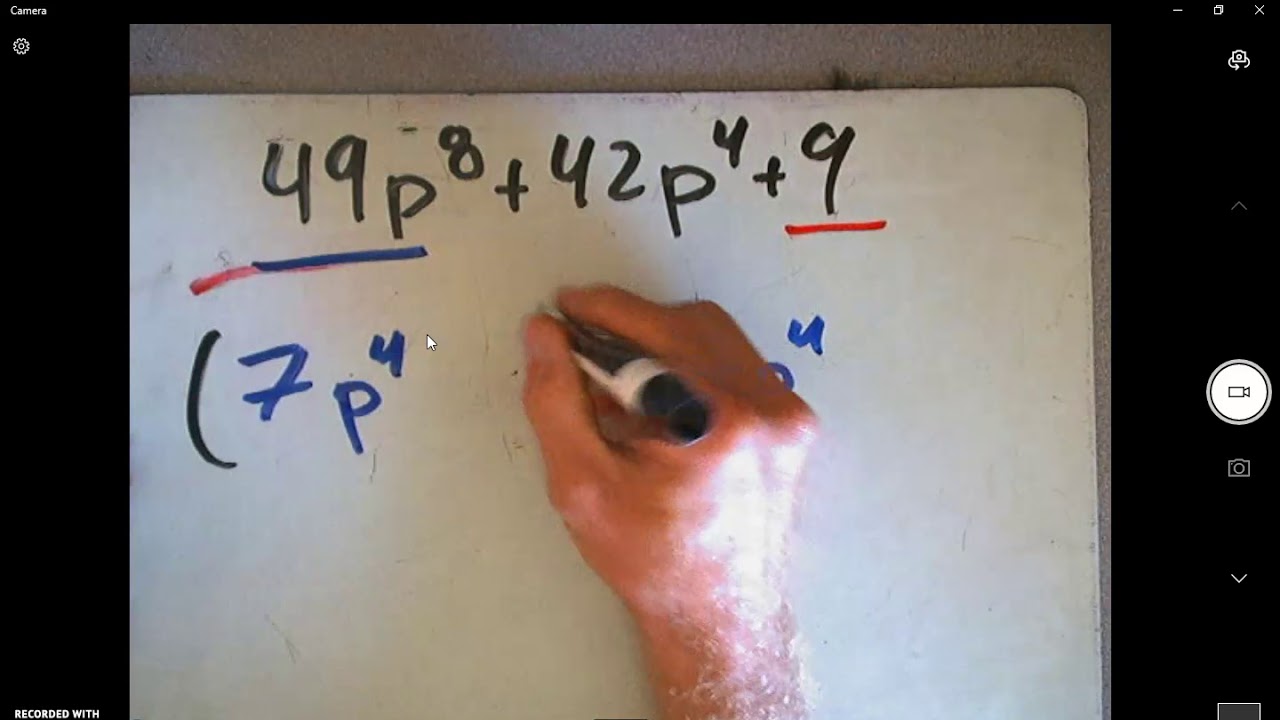 Camera
49p⁸+42p⁴+9
(7p⁴ p⁴
RECORDED WITH